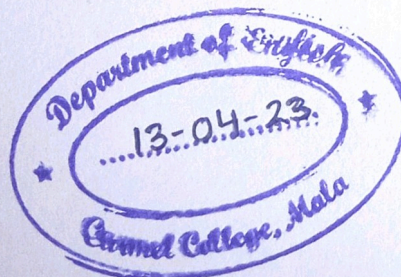 Department of English
13-04-23
Carmel College, Mala